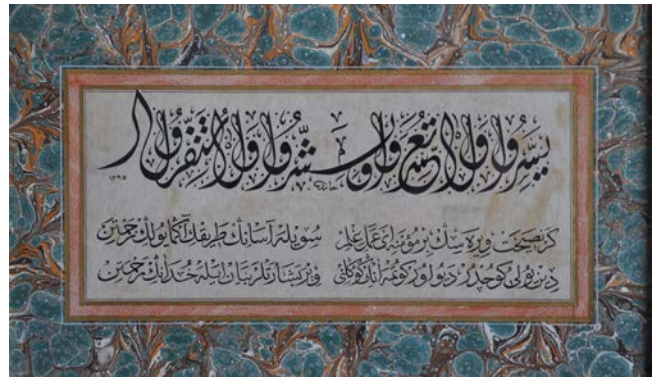 يَسِّرُوا وَلَا تُعَسِّرُوا وَبَشِّرُوا وَلَا تُنَفِّرُوا
١٢٩٥
كر نصيحت ويره سك بر مؤمنه اى سويله آسانك طريقك آكا
دين يولى كوجدر ديو اوركوتمه انك كوكلنى وير بشارتلر بيان ايله خدانك رحمتن